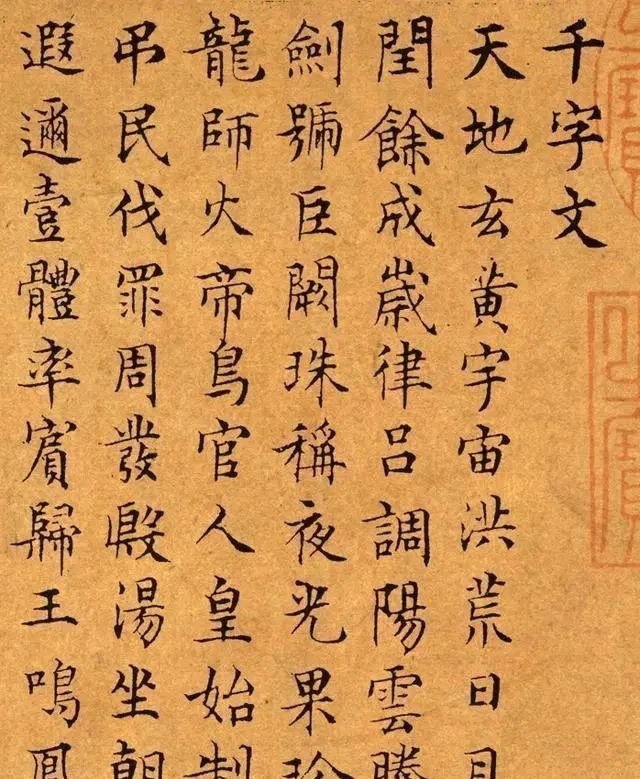 千字文
天地玄黃宇宙洪荒日月
閏餘成歲律呂調陽雲騰
劍號巨闕珠稱夜光果珍
龍師火帝鳥官人皇始制
弔民伐罪周發殷湯坐朝
遐邇壹體率賓歸王鳴鳳